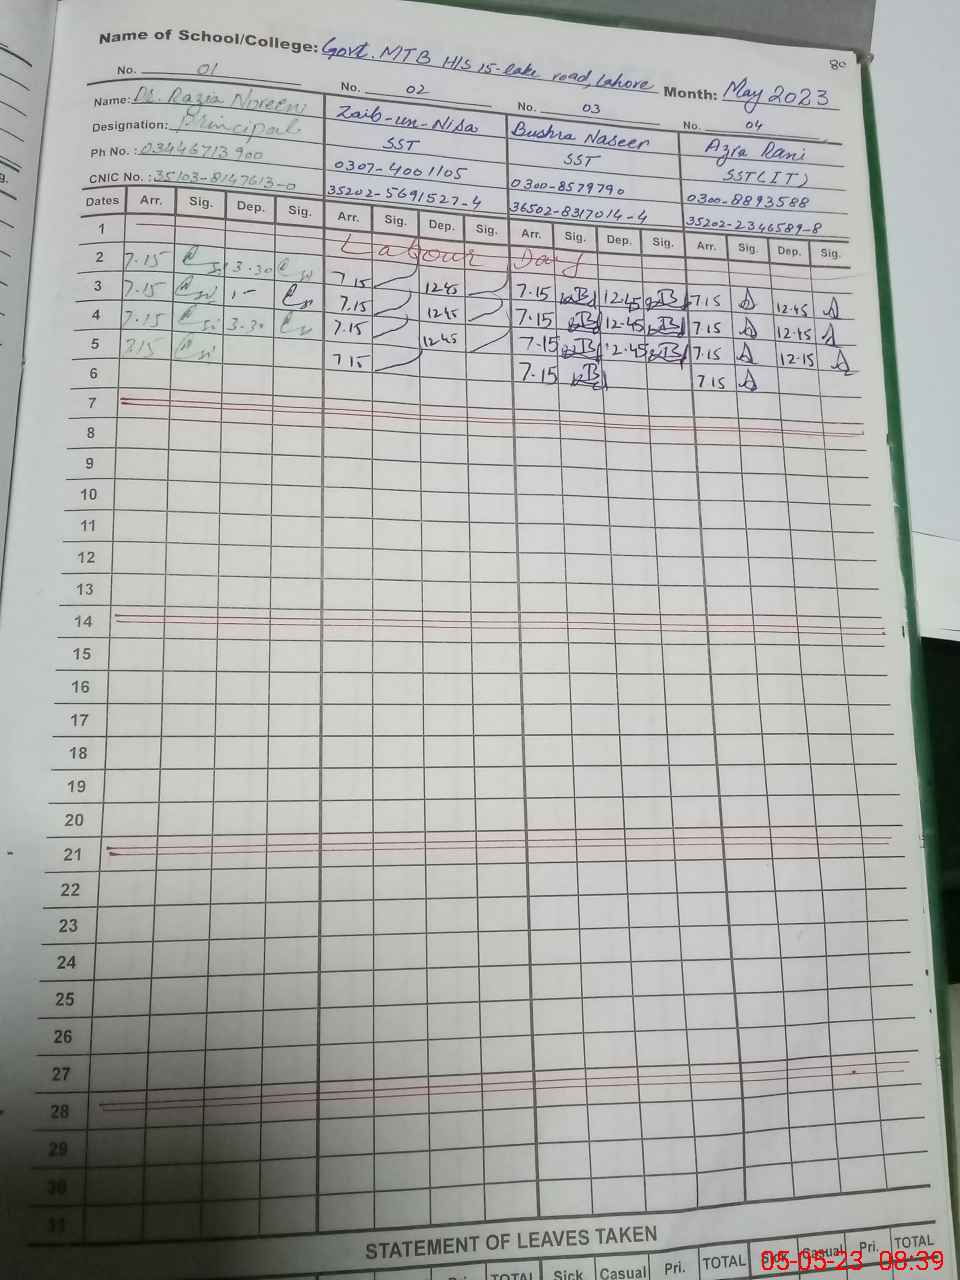 80
Name of School/College: Govt. MTB H/S 15-lake road, Lahore Month: May 2023
No. 01 No. 02 No. 03 No. 04
Name: Dr. Razia Noreen Zaib-un-Nisa Bushra Naseer Azra Rani
Designation: Principal SST SST SST(IT)
Ph No. : 03446713900 0307-4001105 0300-8579790 0300-8893588
CNIC No. : 35103-8147613-0 35202-5691527-4 36502-8317014-4 35202-2346589-8
Dates Arr. Sig. Dep. Sig. Arr. Sig. Dep. Sig. Arr. Sig. Dep. Sig. Arr. Sig. Dep. Sig.
1 Labour Day
2 7.15 3.30 7.15 12.45 7.15 12.45 7.15 12.45
3 7.15 7.15 12.45 7.15 12.45 7.15 12.45
4 7.15 3.30 7.15 12.45 7.15 12.45 7.15 12.15
5 7.15 7.15 7.15
6
7
8
9
10
11
12
13
14
15
16
17
18
19
20
21
22
23
24
25
26
27
28
29
30
31
STATEMENT OF LEAVES TAKEN
Pri. TOTAL Sick Casual Pri. TOTAL Sick Casual Pri. TOTAL
05-05-23 08:39